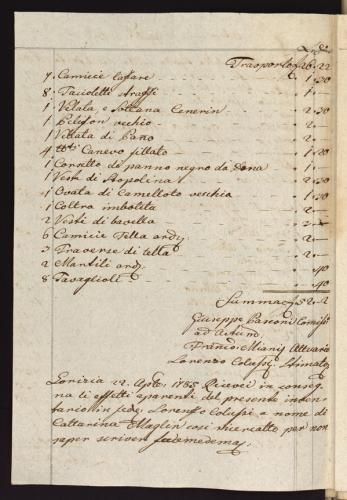 Trasporto 26..22
7 Camicie lassare - 1..30
8 Facioletti Strassi - 1..20
1 Velata e Sottana Cenerin - 2..30
1 Pelison vechio - 2
1 Vellata di Pano - 2
4 Canevo fillato - 1..20
1 Corsetto de panno negro da dona - 1
1 Vest di Stopolina - 2..30
1 Ovata di Camelloto vechia - 1
1 Coltra imbotita - 2
2 Vesti di bavella - 2
6 Camicie Tella ardy - 2
3 Traverse di tella - 2
2 Mantili ardy - ..40
8 Tavaglioli - ..40
Summa 52..2
Giuseppe Comiss
ad actum
Franco Mianis Attuario
Lorenzo Colussi Stimator
Gorizia 22 Agto 1785 Ricevei in conseg
na li effetti aparenti del presente inven
tario in fede, Lorenzo Colussi a nome di
Cattarina Maglin così ricercatto per non
saper scriver